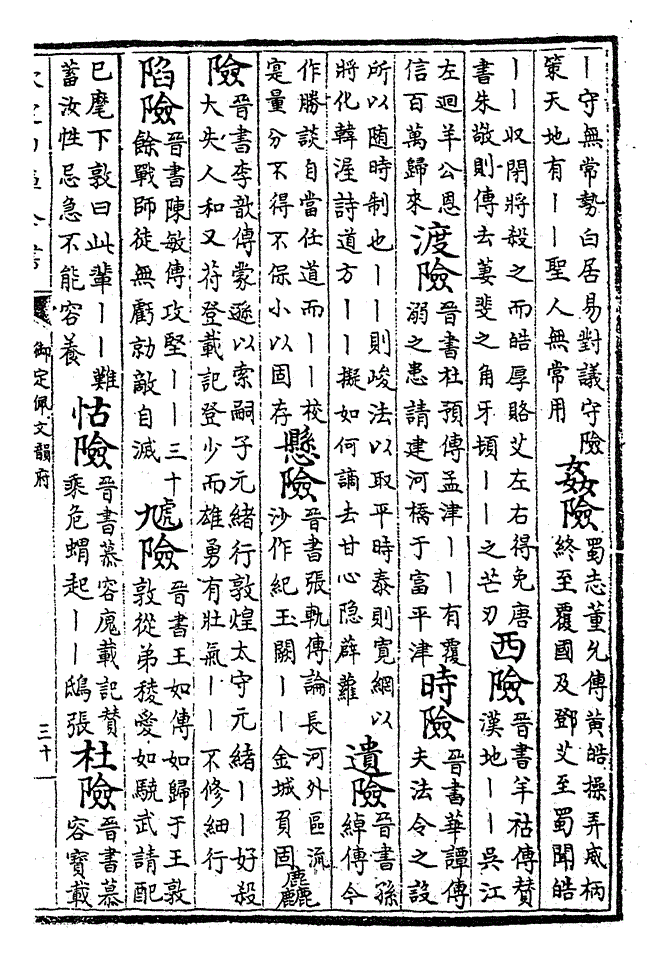 丨守無常勢白居易對議守險
策天地有丨丨聖人無常用
姦險
蜀志董允傳黃皓操弄威柄
終至覆國及鄧艾至蜀聞皓
丨丨収閉將殺之而皓厚賂艾左右得免唐
書朱敬則傳去萋斐之角牙頓丨丨之芒刃
西險
晉書羊祜傳贊
漢地丨丨吳江
左迴羊公恩
信百萬歸來
渡險
晉書杜預傳孟津丨丨有覆
溺之患請建河橋于富平津
時險
晉書華譚傳
夫法令之設
所以随時制也丨丨則峻法以取平時泰則寛網以
將化韓渥詩道方丨丨擬如何謫去甘心隐薜蘿
遺險
晉書孫
綽傳今
作勝談自當任道而丨丨校
寔量分不得不保小以固存
懸險
晉書張軌傳論長河外區流
沙作紀玉關丨丨金城負固
麤
險
晉書李歆傳蒙遜以索嗣子元緒行敦煌太守元緒丨丨好殺
大失人和又苻登載記登少而雄勇有壯氣丨丨不修細行
陷險
晉書陳敏傳攻堅丨丨三十
餘戰師徒無虧勍敵自滅
虓險
晉書王如傳如歸于王敦
敦從弟稜愛如驍武請配
已麾下敦曰此輩丨丨難
蓄汝性忌急不能容養
怙險
晉書慕容廆載記贊
乘危蝟起丨丨鴟張
杜險
晉書慕
容寶載
御定佩文韻府
三十